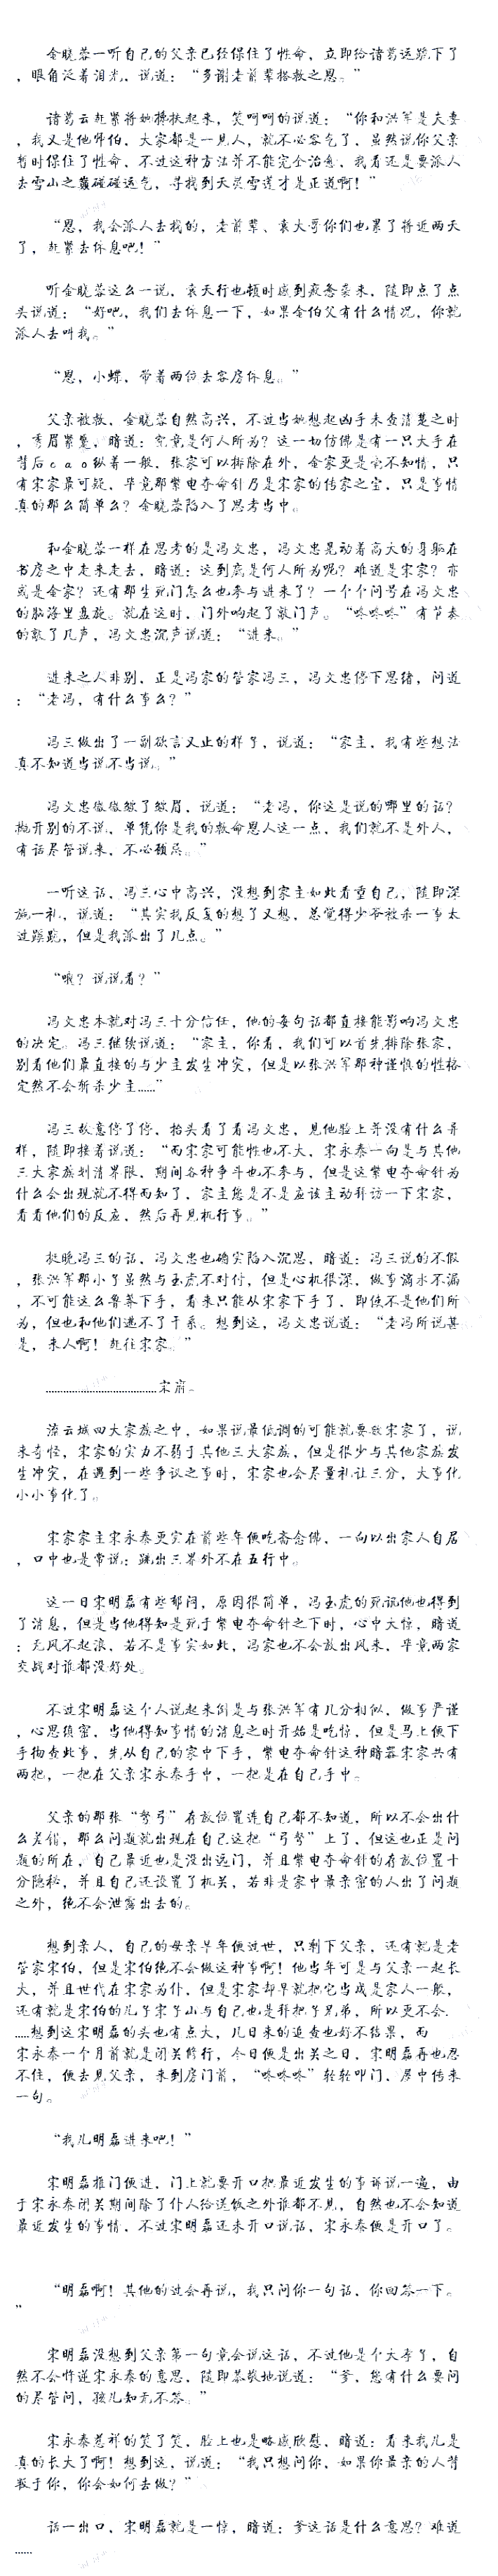 金晓蓉一听自己的父亲已经保住了性命，立即给诸葛运跪下了
，眼角泛着泪光，说道：“多谢老前辈搭救之恩。”
诸葛云赶紧将她搀扶起来，笑呵呵的说道：“你和洪军是夫妻
，我又是他师伯，大家都是一见人，就不必客气了，虽然说你父亲
暂时保住了性命，不过这种方法并不能完全治愈，我看还是要派人
去雪山之巅碰碰运气，寻找到天灵雪莲才是正道啊！”
“恩，我会派人去找的，老前辈、袁大哥你们也累了将近两天
了，赶紧去休息吧！”
听金晓蓉这么一说，袁天行也顿时感到疲惫袭来，随即点了点
头说道：“好吧，我们去休息一下，如果金伯父有什么情况，你就
派人去叫我。”
“恩，小蝶，带着两位去客房休息。”
父亲被救，金晓蓉自然高兴，不过当她想起凶手未查清楚之时
，秀眉紧蹙，暗道：究竟是何人所为？这一切仿佛是有一只大手在
背后ｃａｏ纵着一般，张家可以排除在外，金家更是毫不知情，只
有宋家最可疑，毕竟那紫电夺命针乃是宋家的传家之宝，只是事情
真的那么简单么？金晓蓉陷入了思考当中。
和金晓蓉一样在思考的是冯文忠，冯文忠晃动着高大的身躯在
书房之中走来走去，暗道：这到底是何人所为呢？难道是宋家？亦
或是金家？还有那生死门怎么也参与进来了？一个个问号在冯文忠
的脑海里盘旋。就在这时，门外响起了敲门声。“咚咚咚”有节奏
的敲了几声，冯文忠沉声说道：“进来。”
进来之人非别，正是冯家的管家冯三，冯文忠停下思绪，问道
：“老冯，有什么事么？”
冯三做出了一副欲言又止的样子，说道：“家主，我有些想法
真不知道当说不当说。”
冯文忠微微皱了皱眉，说道：“老冯，你这是说的哪里的话？
抛开别的不说，单凭你是我的救命恩人这一点，我们就不是外人，
有话尽管说来，不必顾忌。”
一听这话，冯三心中高兴，没想到家主如此看重自己，随即深
施一礼，说道：“其实我反复的想了又想，总觉得少爷被杀一事太
过蹊跷，但是我派出了几点。”
“哦？说说看？”
冯文忠本就对冯三十分信任，他的每句话都直接能影响冯文忠
的决定。冯三继续说道：“家主，你看，我们可以首先排除张家，
别看他们最直接的与少主发生冲突，但是以张洪军那种谨慎的性格
定然不会斩杀少主……”
冯三故意停了停，抬头看了看冯文忠，见他脸上并没有什么异
样，随即接着说道：“而宋家可能性也不大，宋永泰一向是与其他
三大家族划清界限，期间各种争斗也不参与，但是这紫电夺命针为
什么会出现就不得而知了，家主您是不是应该主动拜访一下宋家，
看看他们的反应，然后再见机行事。”
听完冯三的话，冯文忠也确实陷入沉思，暗道：冯三说的不假
，张洪军那小子虽然与玉虎不对付，但是心机很深，做事滴水不漏
，不可能这么鲁莽下手，看来只能从宋家下手了，即使不是他们所
为，但也和他们逃不了干系。想到这，冯文忠说道：“老冯所说甚
是，来人啊！赶往宋家。”
…………………………………宋府。
流云城四大家族之中，如果说最低调的可能就要数宋家了，说
来奇怪，宋家的实力不弱于其他三大家族，但是很少与其他家族发
生冲突，在遇到一些争议之事时，宋家也会尽量礼让三分，大事化
小小事化了。
宋家家主宋永泰更实在前些年便吃斋念佛，一向以出家人自居
，口中也是常说：跳出三界外不在五行中。
这一日宋明磊有些郁闷，原因很简单，冯玉虎的死讯他也得到
了消息，但是当他得知是死于紫电夺命针之下时，心中大惊，暗道
：无风不起浪，若不是事实如此，冯家也不会放出风来，毕竟两家
交战对谁都没好处。
不过宋明磊这个人说起来倒是与张洪军有几分相似，做事严谨
，心思缜密，当他得知事情的消息之时开始是吃惊，但是马上便下
手彻查此事，先从自己的家中下手，紫电夺命针这种暗器宋家共有
两把，一把在父亲宋永泰手中，一把是在自己手中。
父亲的那张“弩弓”存放位置连自己都不知道，所以不会出什
么差错，那么问题就出现在自己这把“弓弩”上了，但这也正是问
题的所在，自己最近也是没出远门，并且紫电夺命针的存放位置十
分隐秘，并且自己还设置了机关，若非是家中最亲密的人出了问题
之外，绝不会泄露出去的。
想到亲人，自己的母亲早年便逝世，只剩下父亲，还有就是老
管家宋伯，但是宋伯绝不会做这种事啊！他当年可是与父亲一起长
大，并且世代在宋家为仆，但是宋家却早就把它当成是家人一般，
还有就是宋伯的儿子宋子山与自己也是拜把子兄弟，所以更不会.
.....想到这宋明磊的头也有点大，几日来的追查也好不结果，而
宋永泰一个月前就是闭关修行，今日便是出关之日，宋明磊再也忍
不住，便去见父亲，来到房门前，“咚咚咚”轻轻叩门，房中传来
一句。
“我儿明磊进来吧！”
宋明磊推门便进，门上就要开口把最近发生的事诉说一遍，由
于宋永泰闭关期间除了仆人给送饭之外谁都不见，自然也不会知道
最近发生的事情，不过宋明磊还未开口说话，宋永泰便是开口了。
“明磊啊！其他的过会再说，我只问你一句话，你回答一下。
”
宋明磊没想到父亲第一句竟会说这话，不过他是个大孝子，自
然不会忤逆宋永泰的意思，随即恭敬地说道：“爹，您有什么要问
的尽管问，孩儿知无不答。”
宋永泰慈祥的笑了笑，脸上也是略感欣慰，暗道：看来我儿是
真的长大了啊！想到这，说道：“我只想问你，如果你最亲的人背
叛于你，你会如何去做？”
话一出口，宋明磊就是一惊，暗道：爹这话是什么意思？难道
……